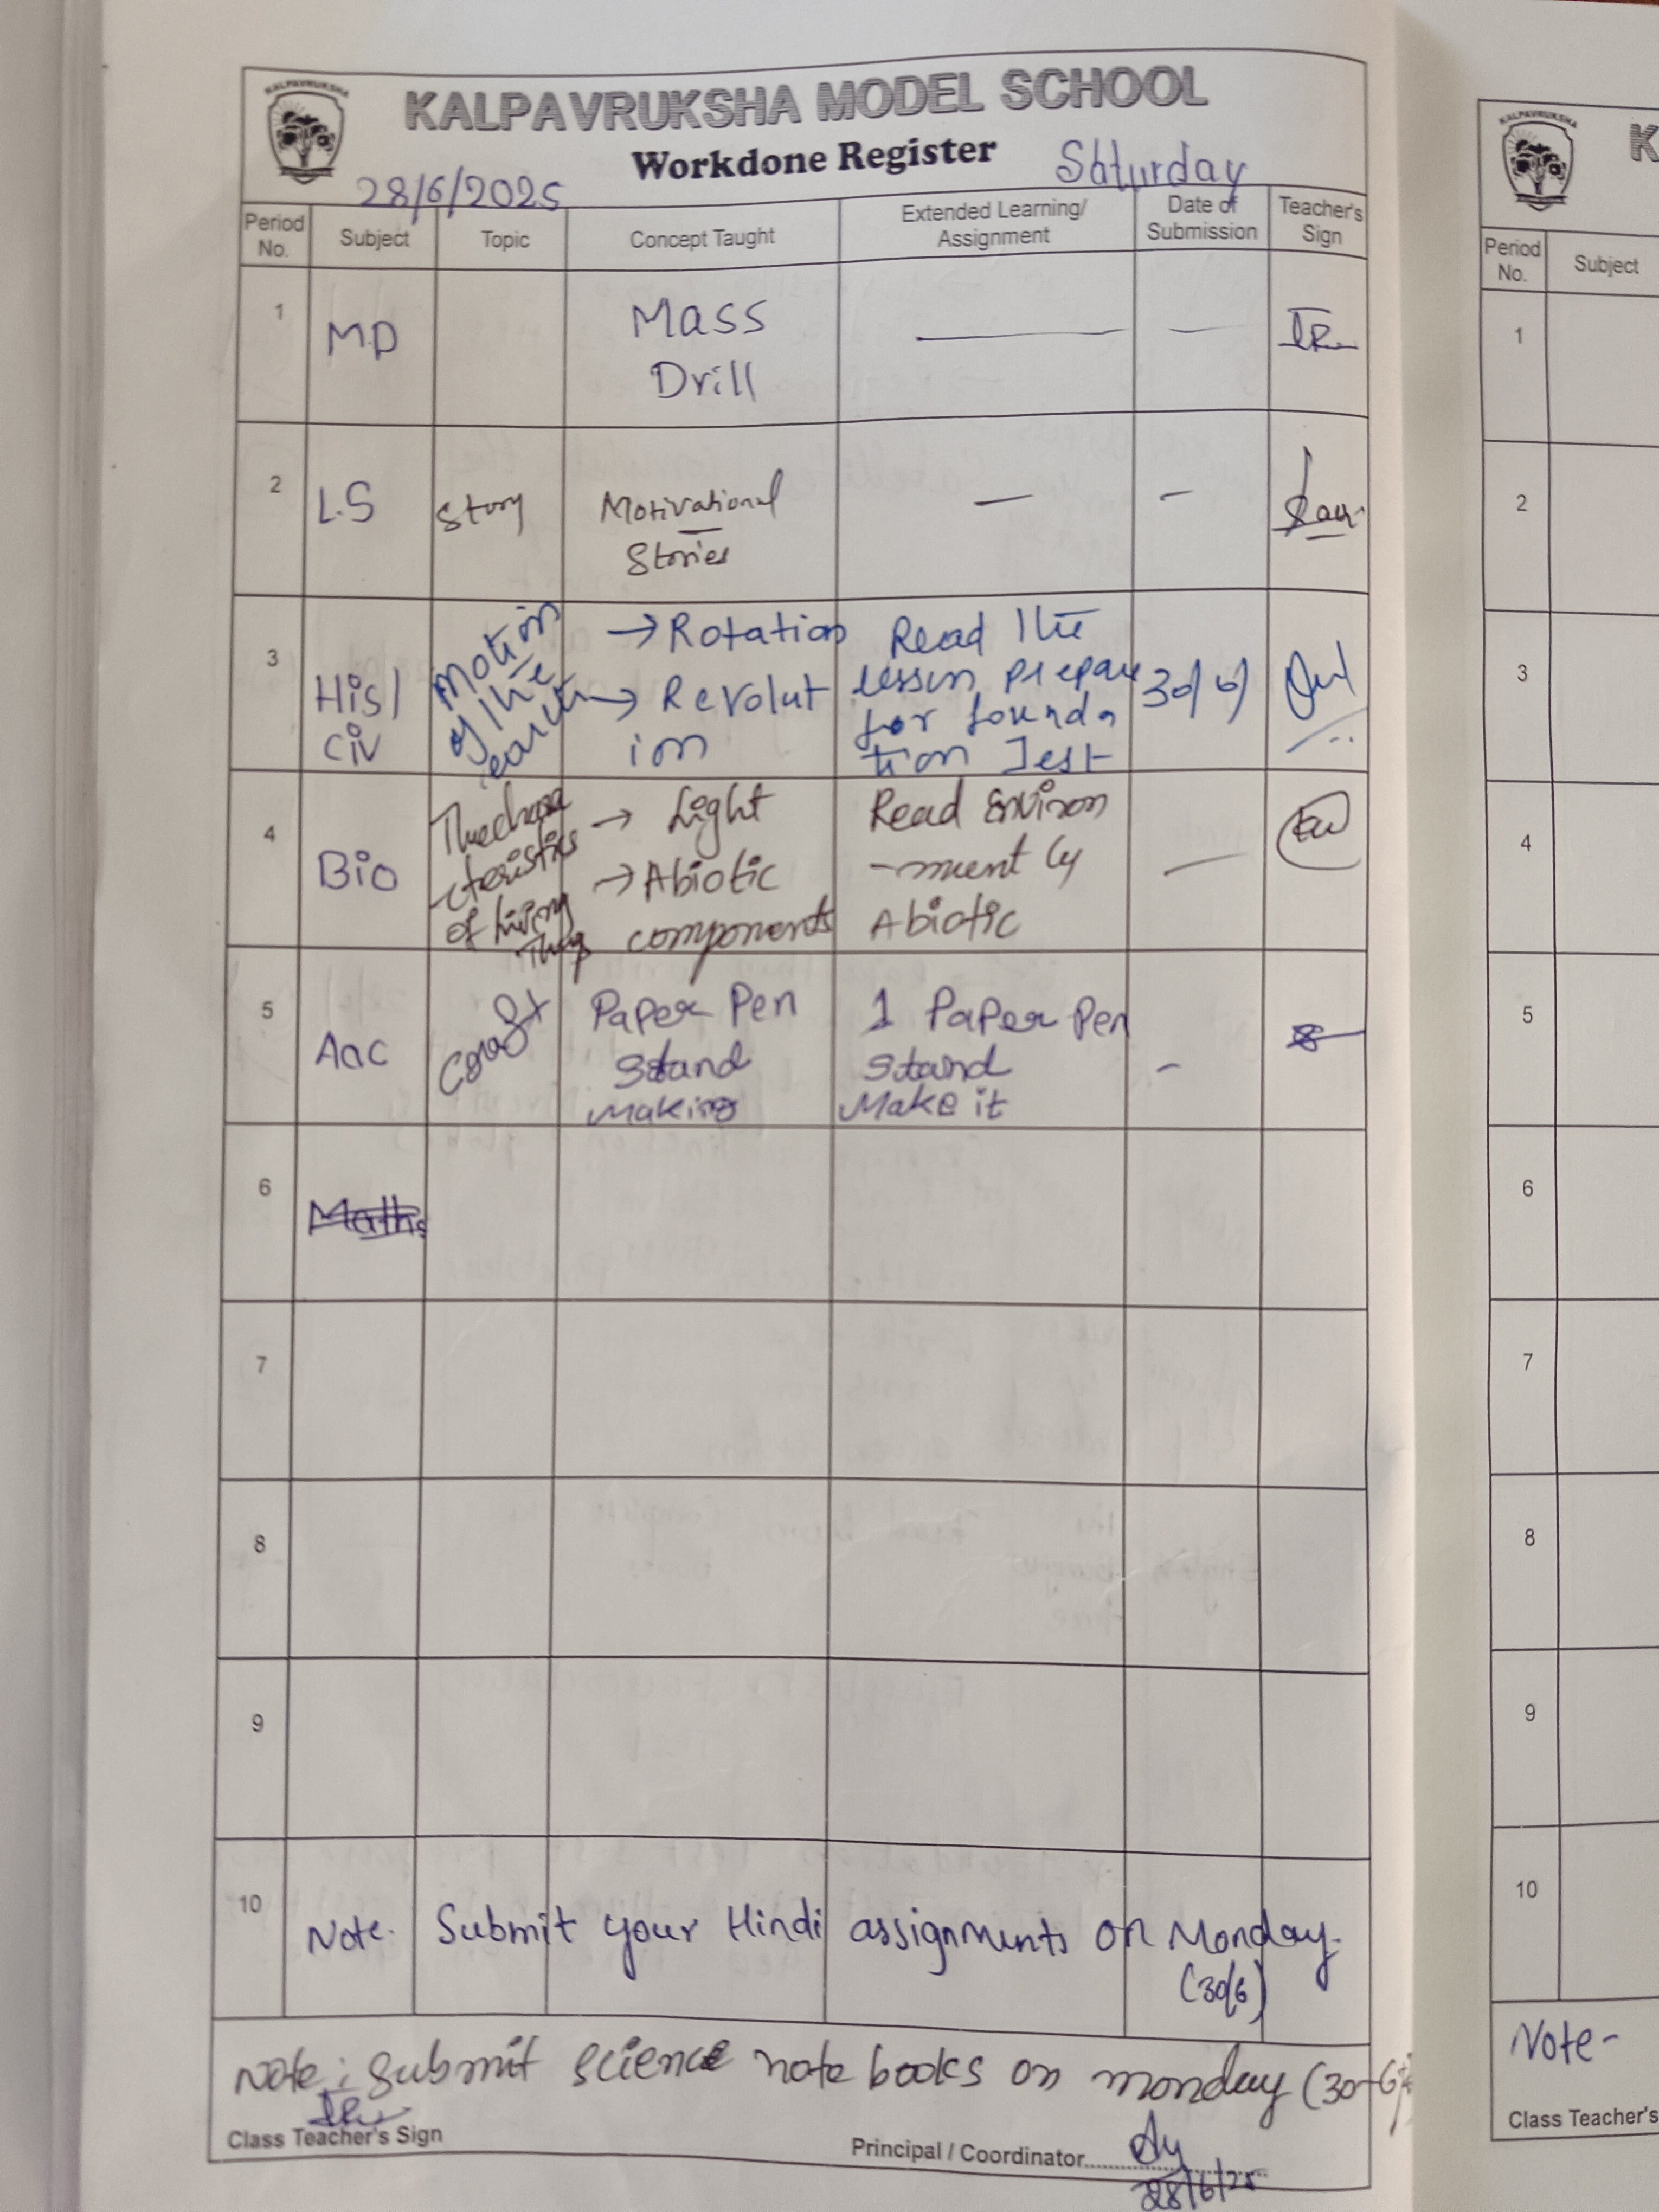 KALPAVRUKSHA
KALPAVRUKSHA MODEL SCHOOL
Workdone Register
28/6/2025
Saturday
Period No.
Subject
Topic
Concept Taught
Extended Learning/
Assignment
Date of
Submission
Teacher's
Sign
1
M.D
Mass
Drill
2
L.S
Story
Motivational
Stories
3
His/
civ
Motion
of the
earth
→ Rotation
→ Revolut
ion
Read the
lesson, prepare
for founda
tion Test
30/6/
4
Bio
The chara
cteristics
of living
→ Light
→ Abiotic
components
Read Environ
-ment
Abiotic
5
Aac
Paper Pen
Stand
Making
1 Paper Pen
Stand
Make it
6
Maths
7
8
9
10
Note. Submit your Hindi assignments on Monday.
(30/6)
Note: Submit science note books on monday (30-6
Class Teacher's Sign
Principal / Coordinator
28/6/25
KALPAVRUKSHA
K
Period
No.
Subject
1
2
3
4
5
6
7
8
9
10
Note-
Class Teacher's